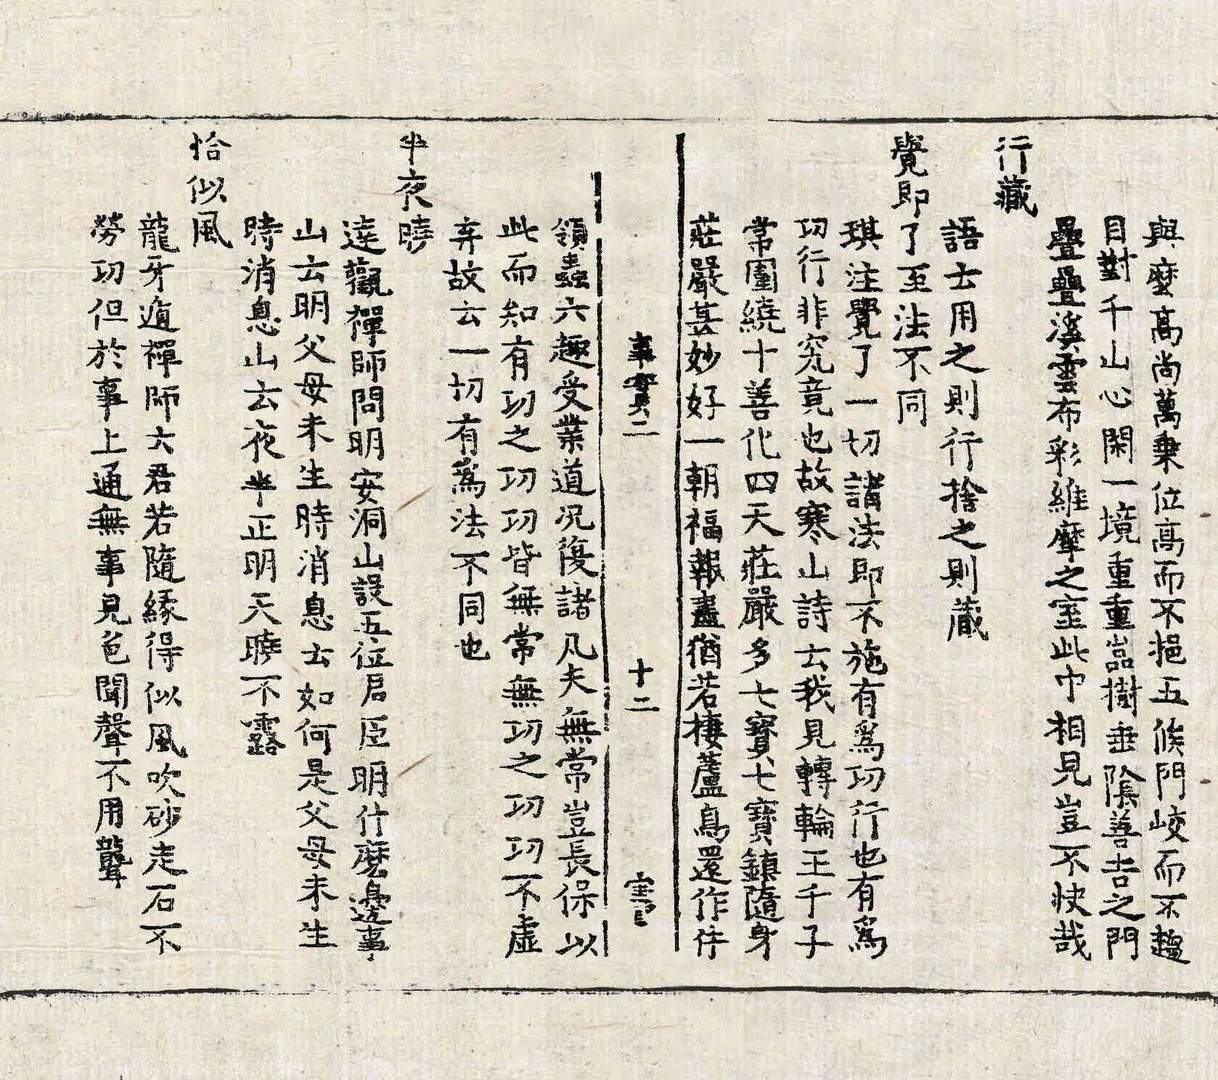 與麼高尚萬乗位高而不挹五候門峧而不趨
目對千山心閑一境重重嵓樹垂陰善吉之門
疊疊溪雲布彩維摩之室此中相見豈不快哉
行藏
語云用之則行捨之則藏
覺即了至法不同
琪注覺了一切諸法即不施有爲功行也有爲
功行非究竟也故寒山詩云我見轉輪王千子
常圍繞十善化四天莊嚴多七寶七寶鎮隨身
莊嚴甚妙好一朝福報盡猶若棲蘆鳥還作牛
事實二 十二
領蟲六趣受業道况復諸凡夫無常豈長保以
此而知有功之功功皆無常無功之功功不虛
弃故云一切有爲法不同也
半夜曉
達觀禪師問明安洞山設五位君臣明什麽邊事
山云明父母未生時消息云如何是父母未生
時消息山云夜半正明天曉不露
恰似風
龍牙遁禪師云君若隨緣得似風吹砂走石不
勞功但於事上通無事見色聞聲不用聾